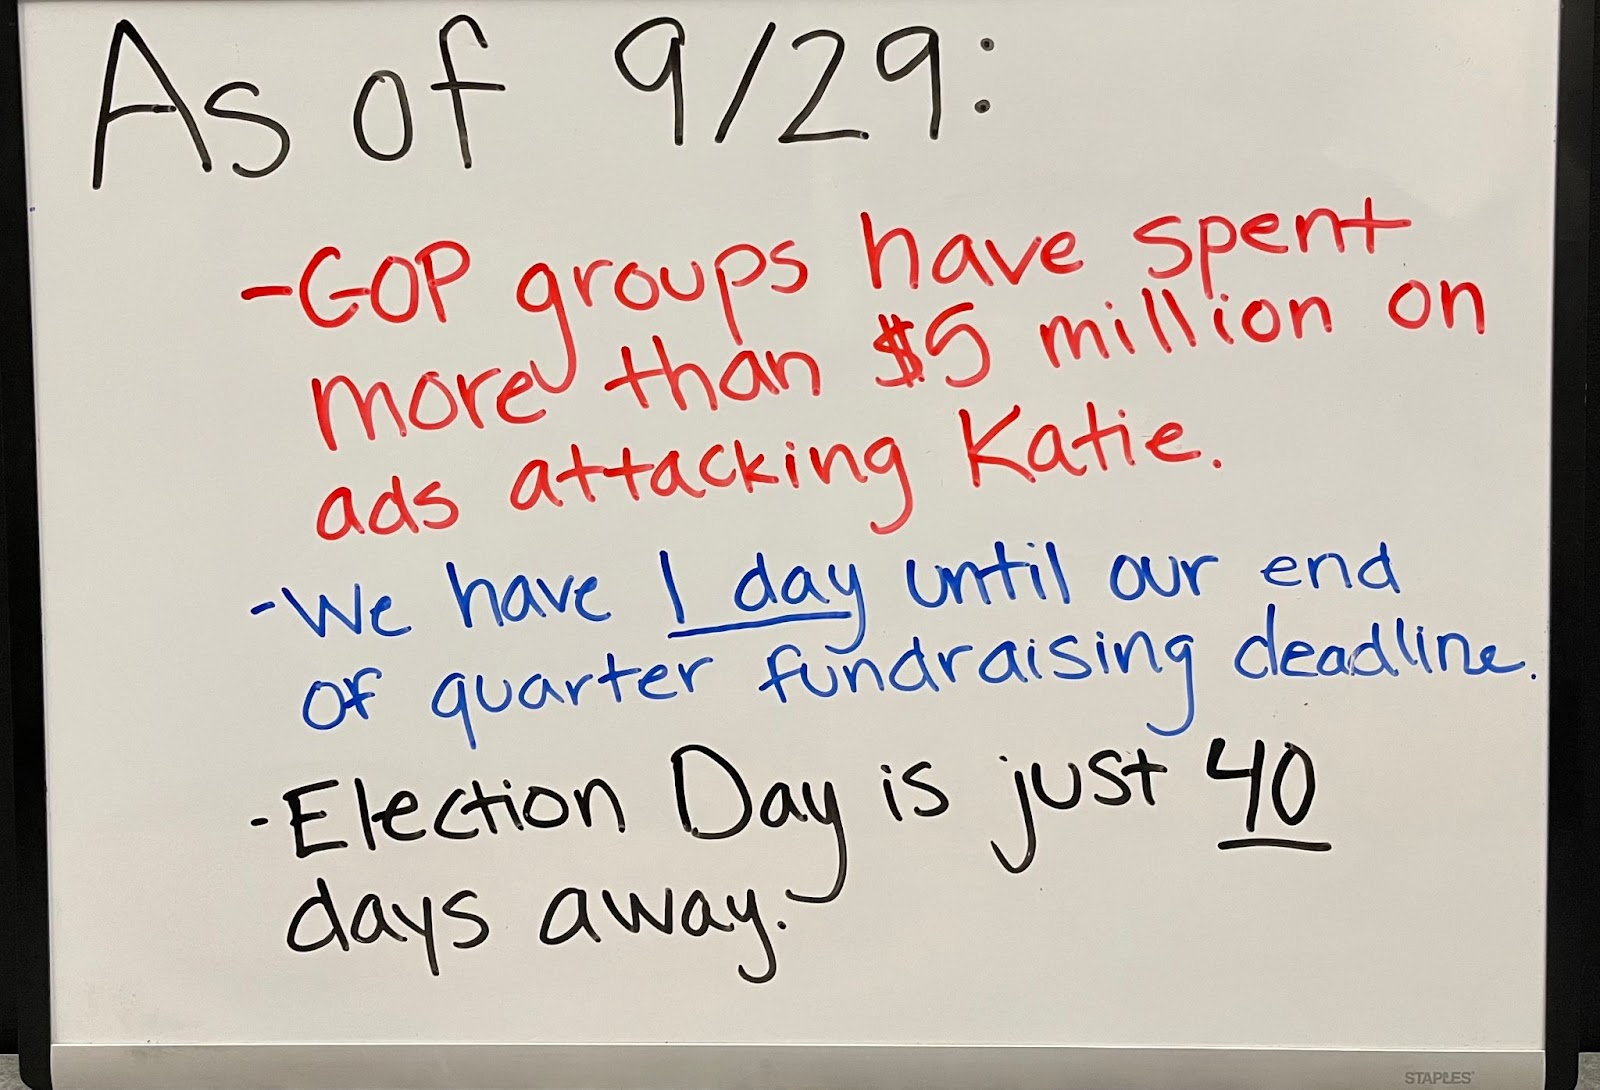 As of 9/29:
-GOP groups have spent
more than $5 million on
ads attacking Katie.
-We have 1 day until our end
of quarter fundraising deadline.
-Election Day is just 40
days away.
STAPLES